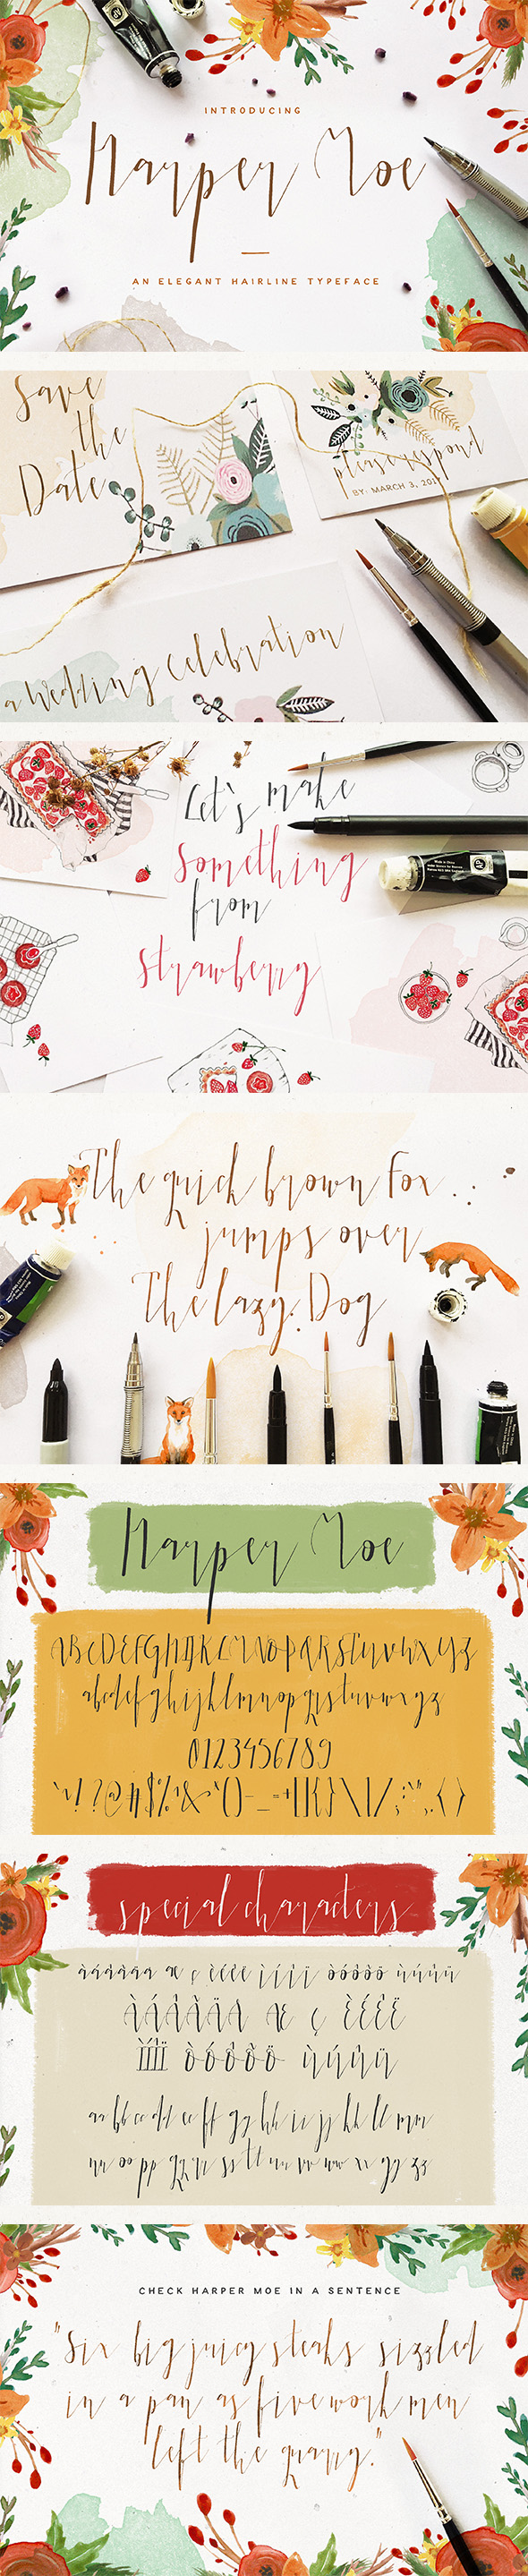 INTRODUCING
Harper Moe
AN ELEGANT HAIRLINE TYPEFACE
Save
the
Date
please respond
BY: MARCH 3, 2017
a wedding celebration
Let's make
something
from
strawberry
The quick brown Fox
jumps over
The lazy Dog
Harper Moe
ABCDEFGHIJKLMNOPQRSTUVWXYZ
abcdefghijklmnopqrstuvwxyz
0123456789
special characters
aa bb cc dd ee ff gg hh ii jj kk ll mm
nn oo pp qq rr ss tt uu vv ww xx yy zz
CHECK HARPER MOE IN A SENTENCE
"Six big juicy steaks sizzled
in a pan as five work men
left the quarry."